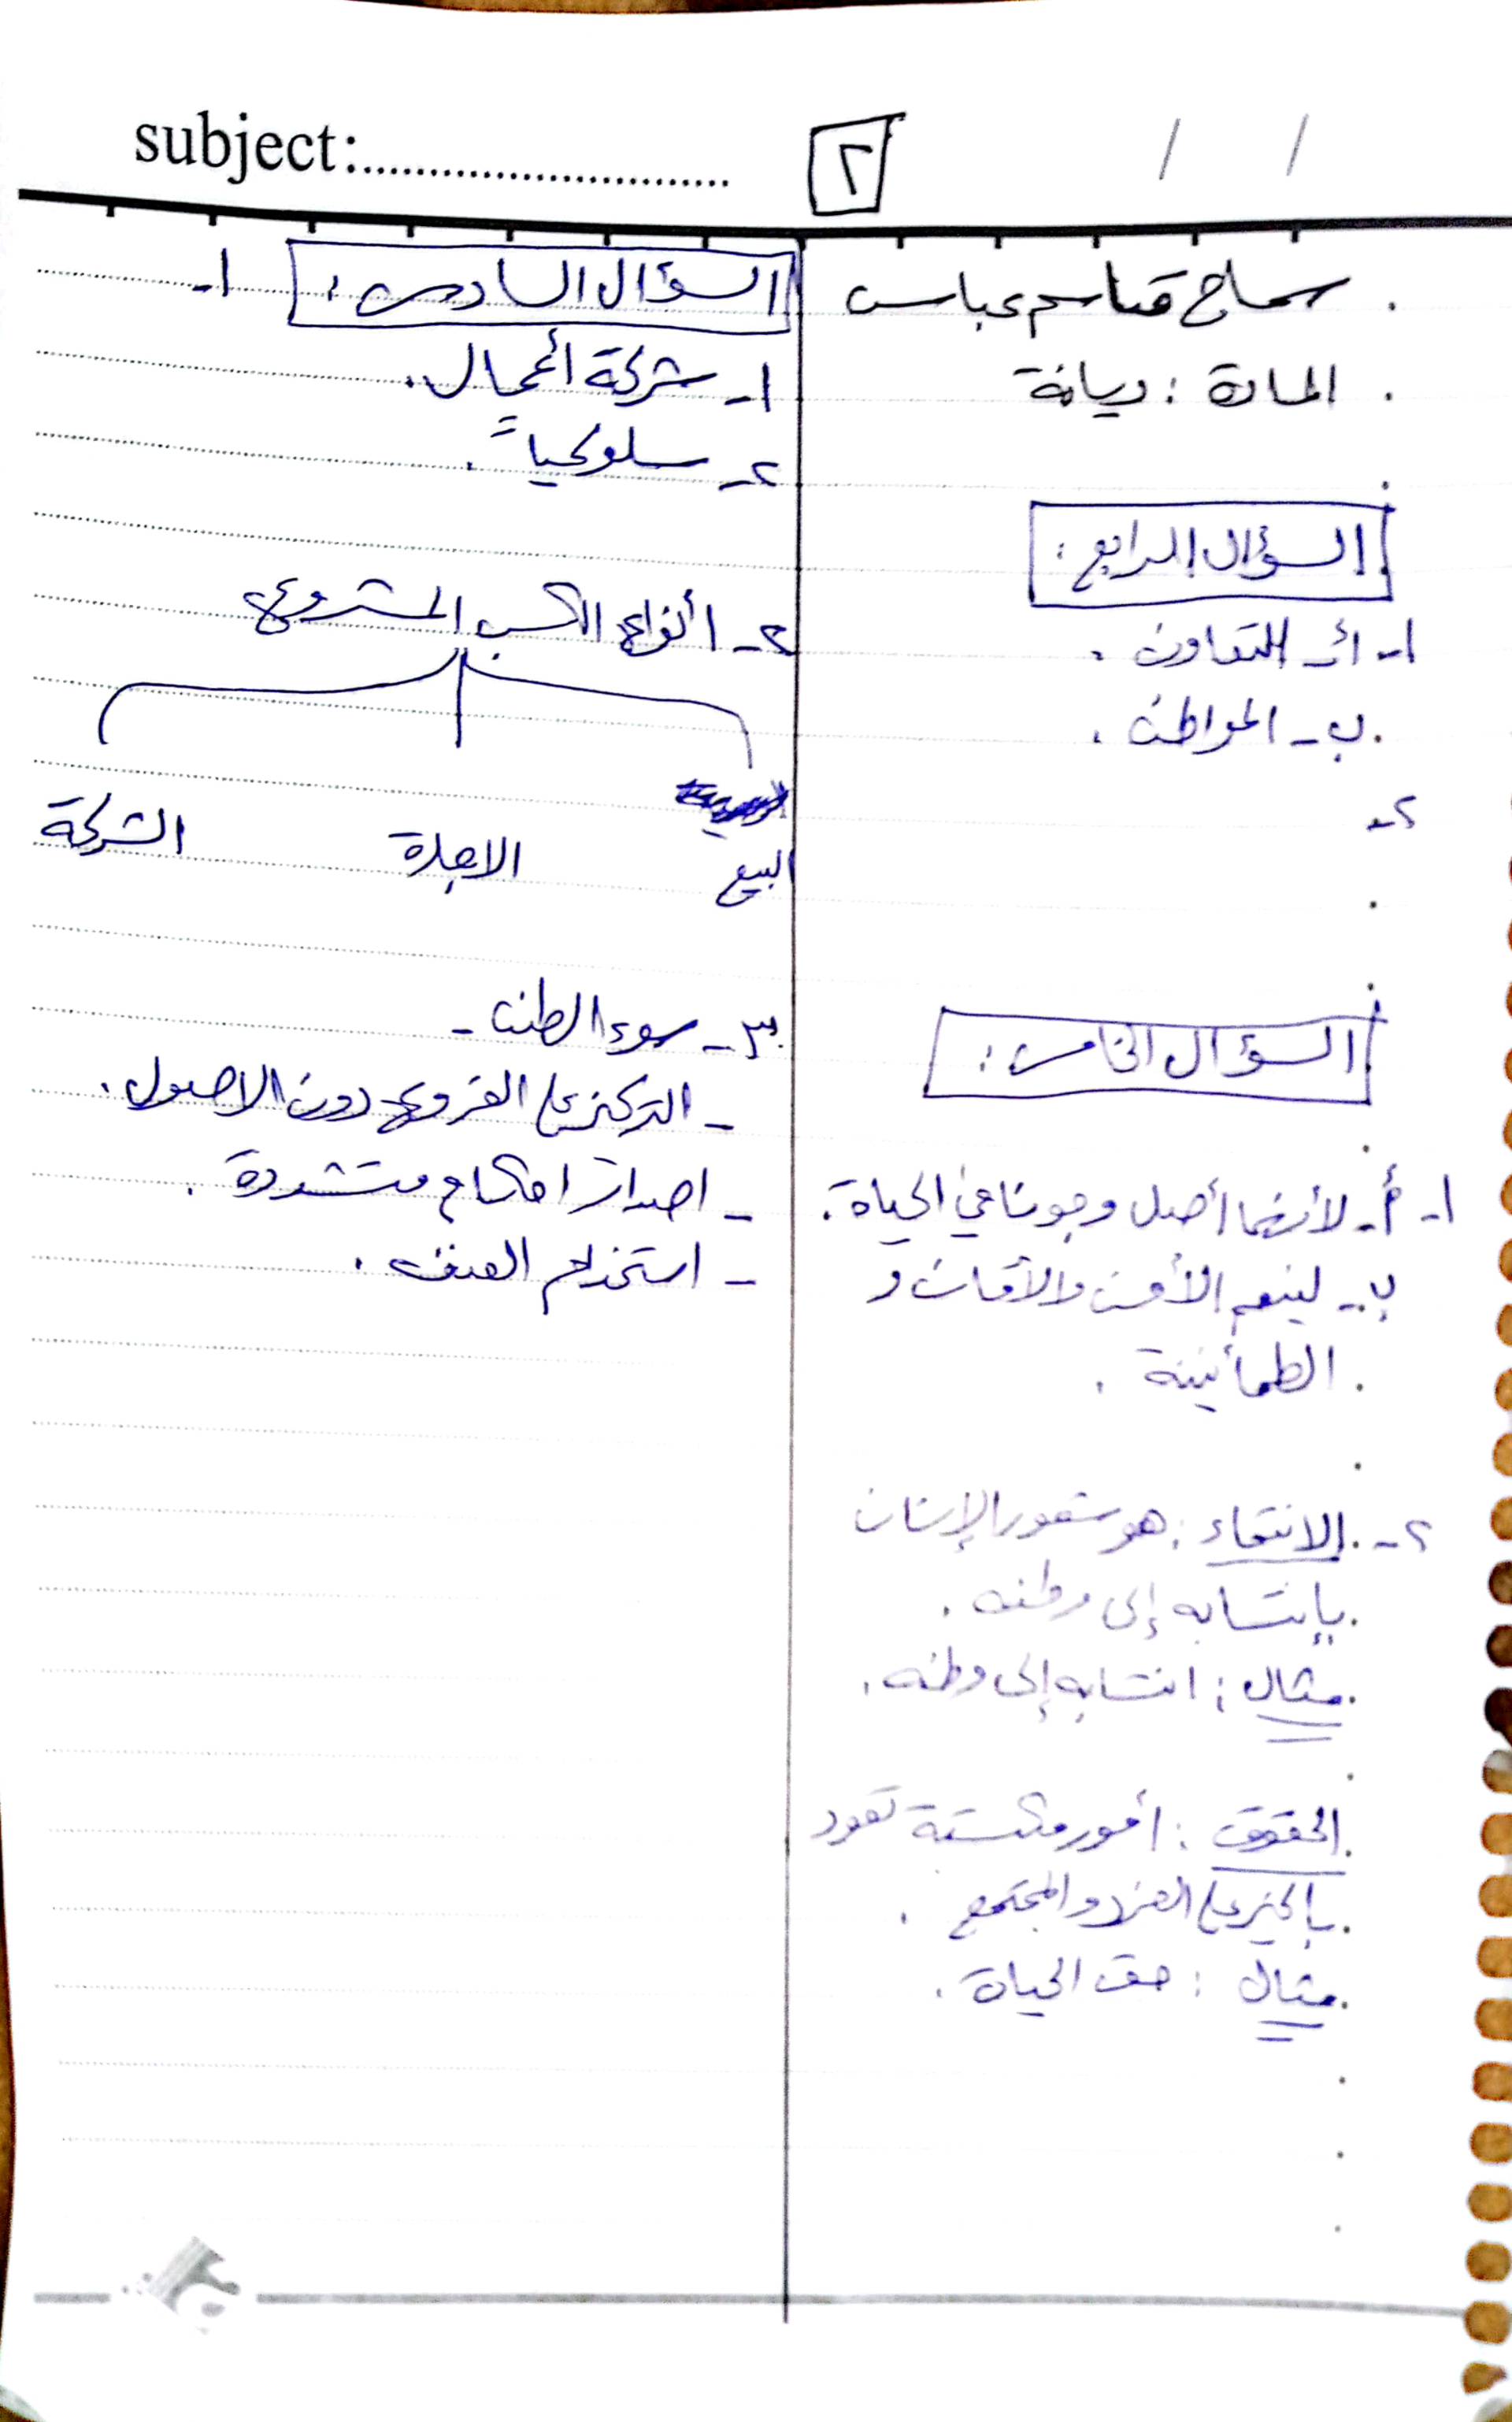 subject:
٢
/ /
سماح قاسم عباس
المادة : ديانة
السؤال الرابع :
١- أ- التعاون .
ب- المواطن .
٢-
السؤال الخامس :
١- أ- لأنهما أصل وجودنا في الحياة .
ب- لينعم الأمن والأمان و
الطمأنينة .
٢- الانتماء : هو شعور الإنسان
بإنتسابه إلى وطنه .
مثال : انتسابه إلى وطنه .
الحقوق : أمور مكتسبة تعود
بالخير على الفرد والمجتمع .
مثال : حق الحياة .
السؤال السادس : ١-
١- شركة أعمال .
٢- سلوكياً .
٢- أنواع الكسب المشروع
البيع الاجارة الشركة
٣- سوء الظن -
- التركيز على الفروع دون الاصول .
- اصدار احكام متشددة .
- استخدام العنف .